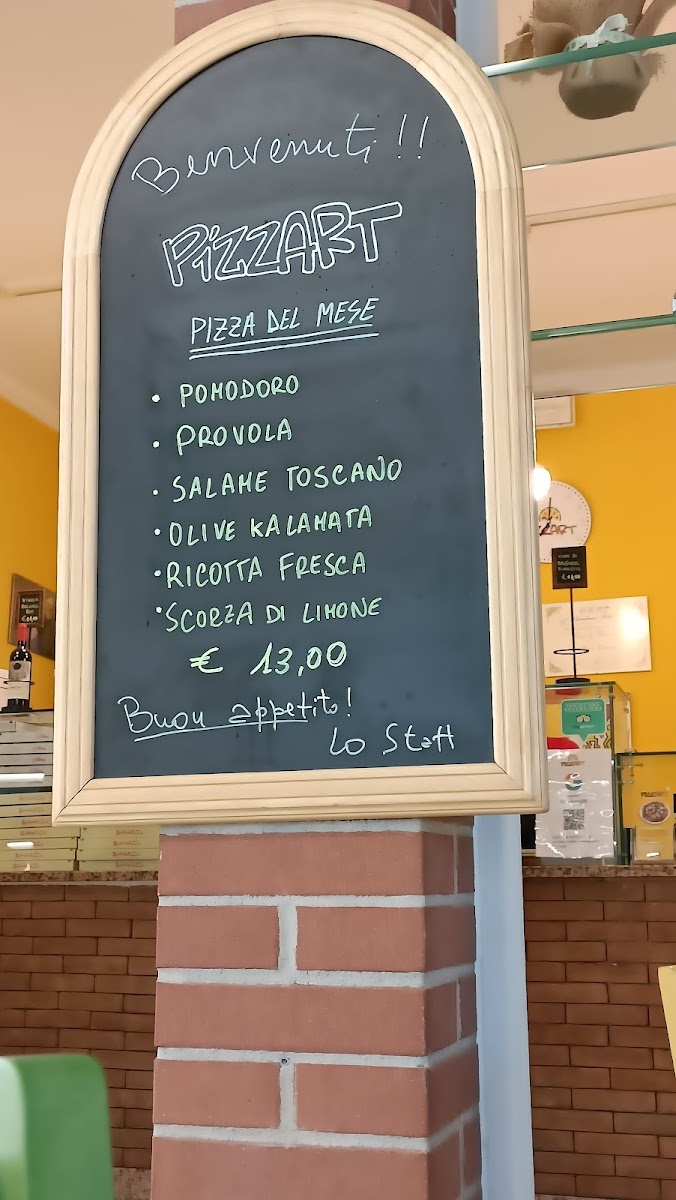 Benvenuti!!
PizzART
PIZZA DEL MESE
• POMODORO
• PROVOLA
• SALAME TOSCANO
• OLIVE KALAMATA
• RICOTTA FRESCA
• SCORZA DI LIMONE
€ 13,00
Buon appetito!
Lo Staff